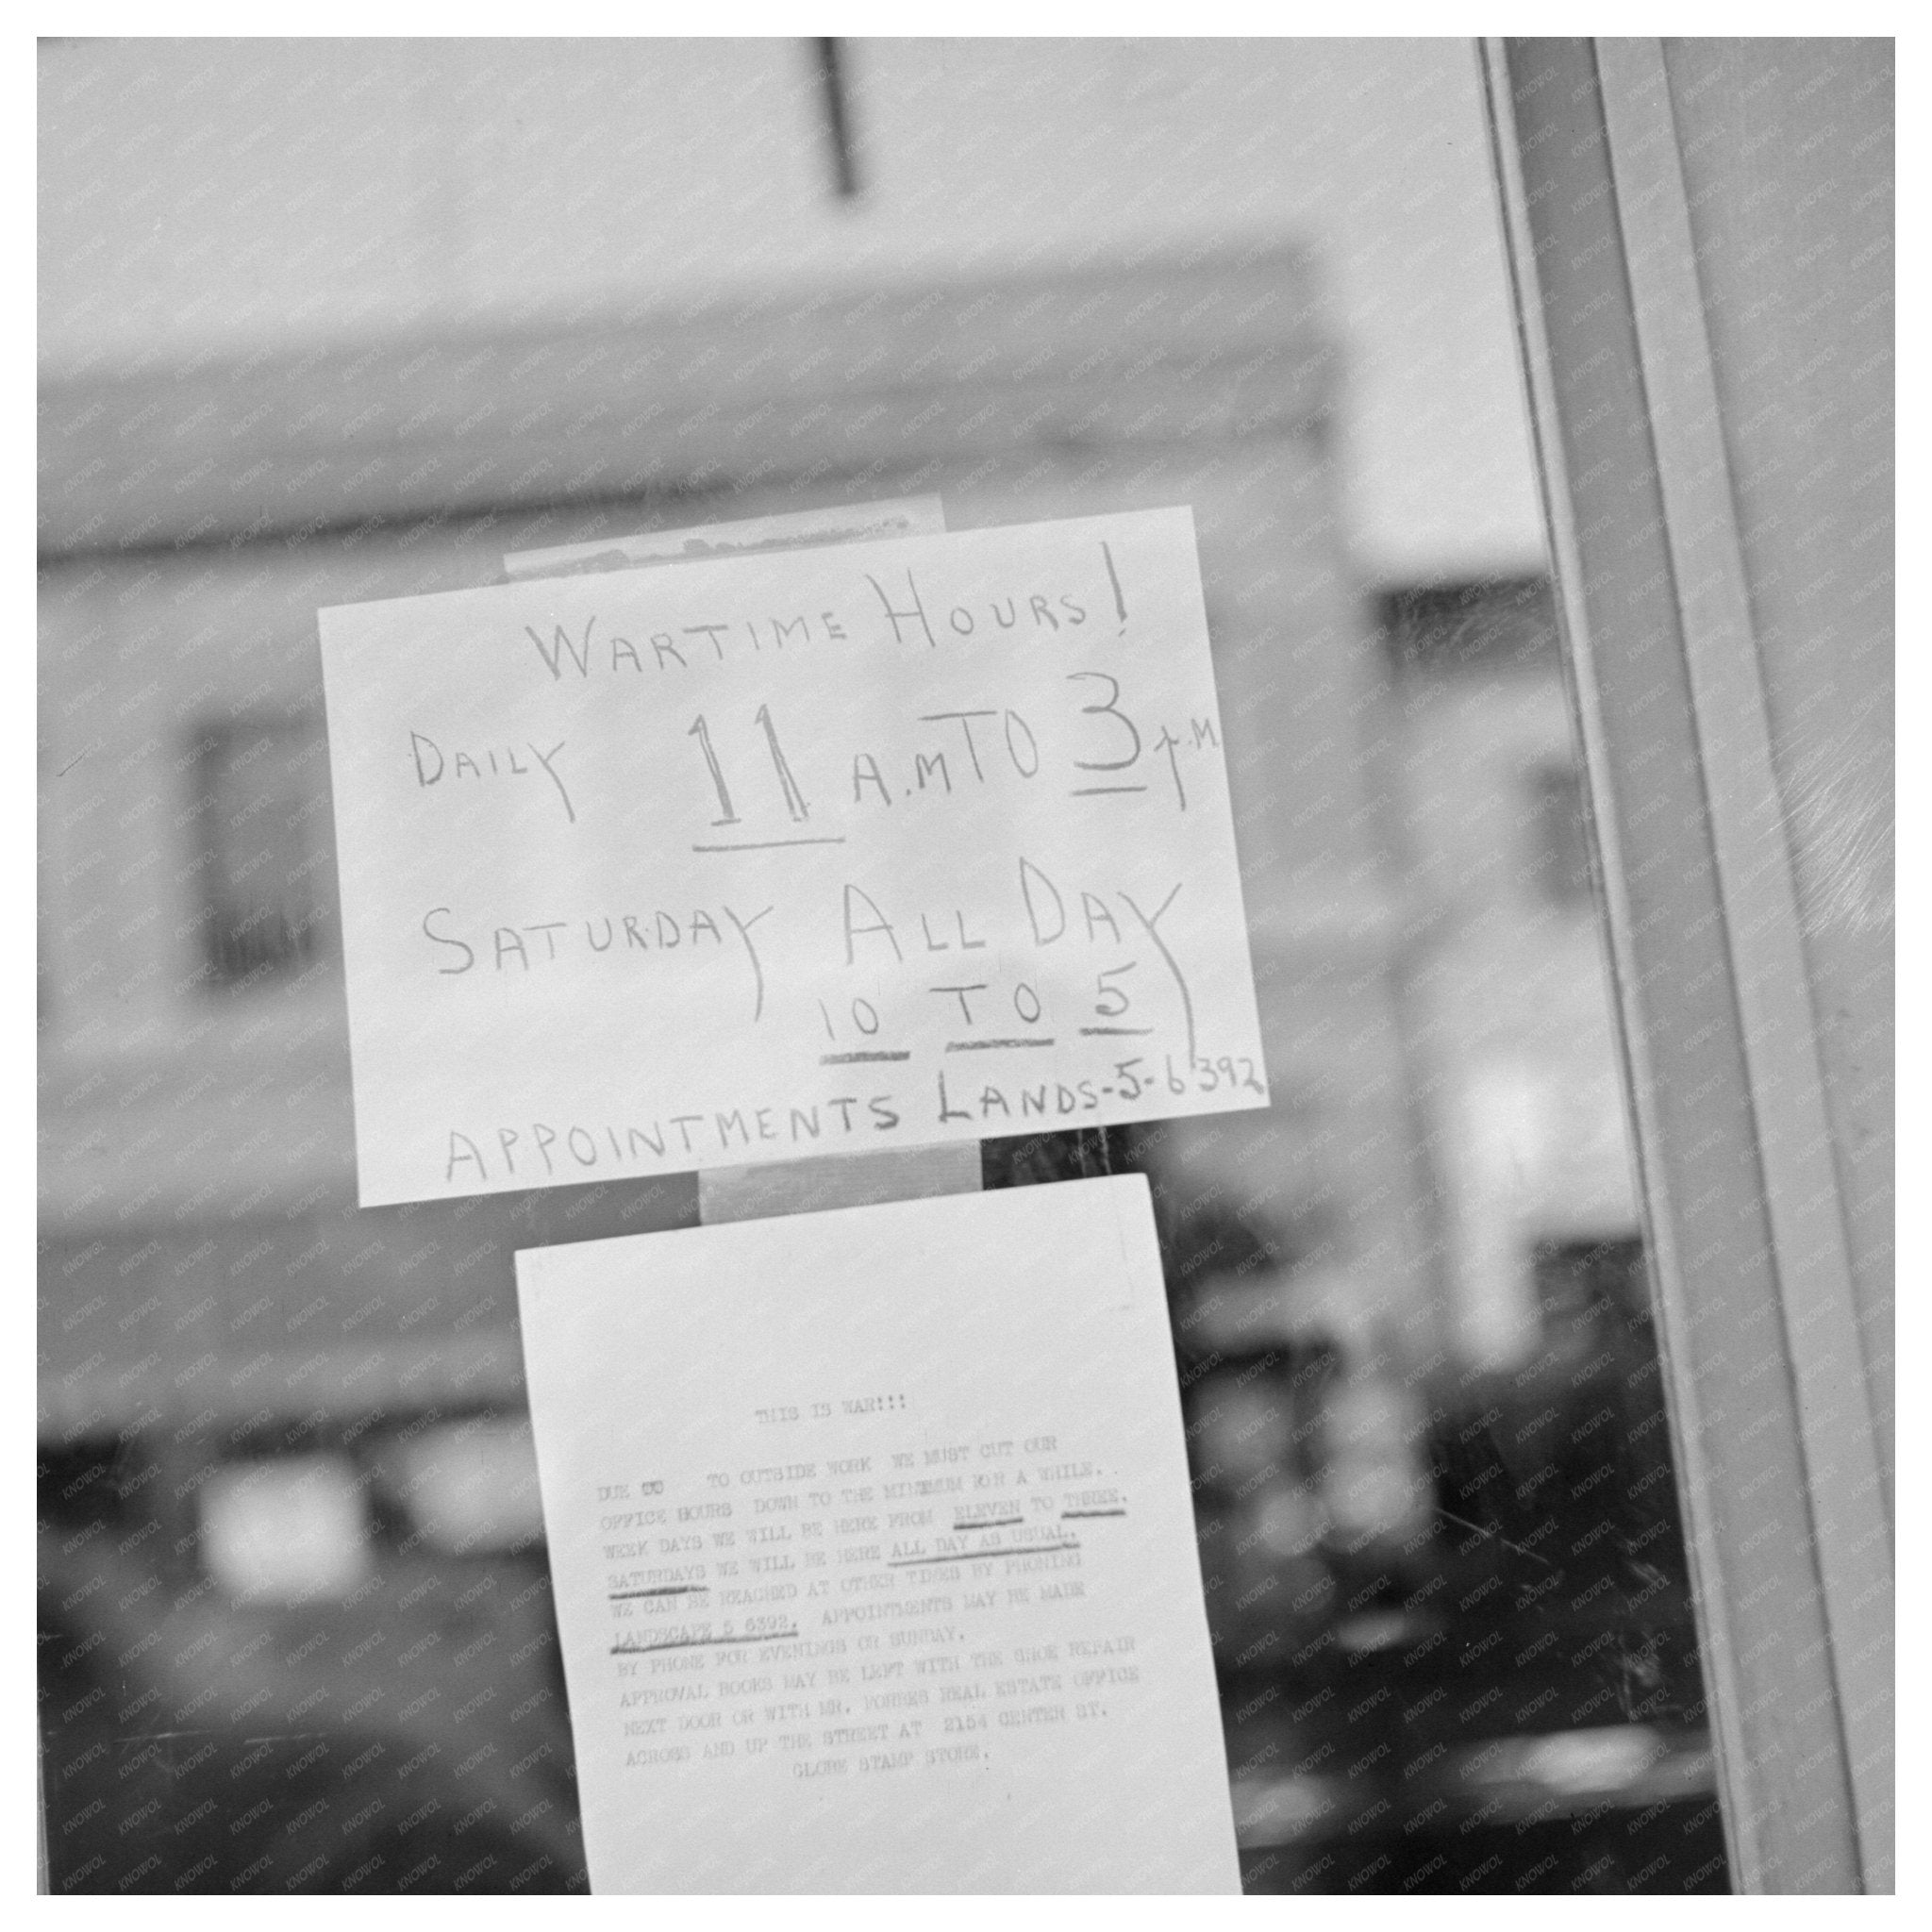 WARTIME HOURS!
DAILY 11 A.M TO 3 P.M
SATURDAY ALL DAY
10 TO 5
APPOINTMENTS LANDS-5-6392
THIS IS WAR!!!
DUE TO OUTSIDE WORK WE MUST CUT OUR
OFFICE HOURS DOWN TO THE MINIMUM FOR A WHILE.
WEEK DAYS WE WILL BE HERE FROM ELEVEN TO THREE.
SATURDAYS WE WILL BE HERE ALL DAY AS USUAL.
WE CAN BE REACHED AT OTHER TIMES BY PHONING
LANDSCAPE 5 6392. APPOINTMENTS MAY BE MADE
BY PHONE FOR EVENINGS OR SUNDAY.
APPROVAL BOOKS MAY BE LEFT WITH THE SHOE REPAIR
NEXT DOOR OR WITH MR. FORBES REAL ESTATE OFFICE
ACROSS AND UP THE STREET AT 2154 CENTER ST.
GLOBE STAMP STORE.
KNOWOL